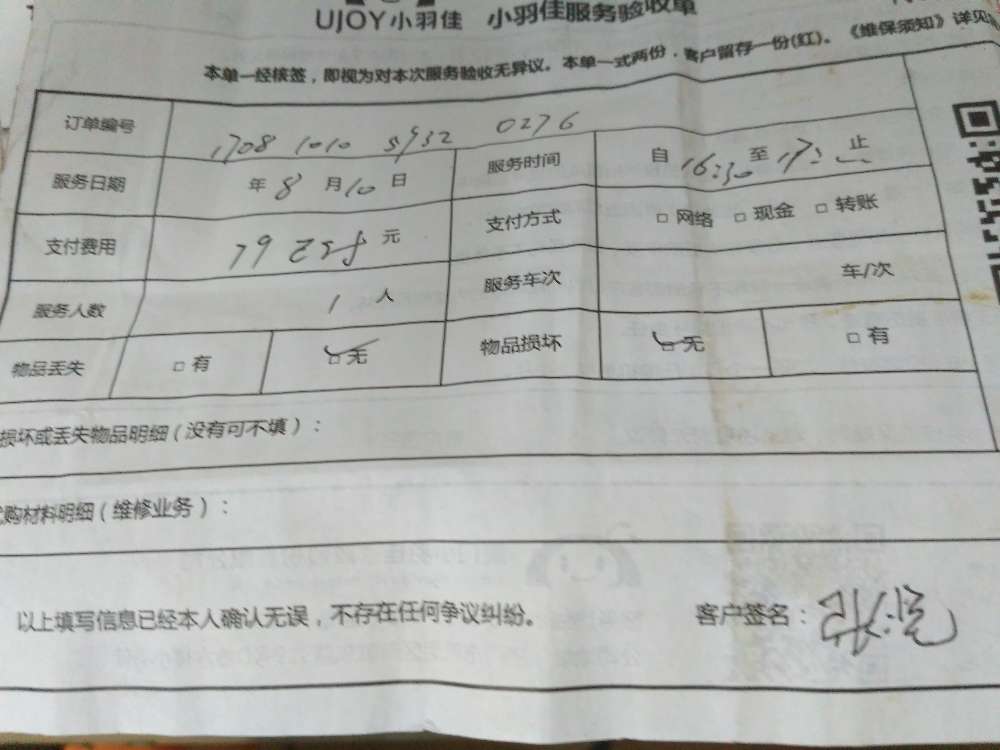 UJOY小羽佳 小羽佳服务验收单
本单一经核签，即视为对本次服务验收无异议。本单一式两份，客户留存一份(红)。《维保须知》详见
订单编号 1708 1010 5932 0276
服务日期 年 8 月 10 日 服务时间 自 16:30 至 17: 止
支付费用 79 元 支付方式 □ 网络 □ 现金 □ 转账
服务人数 1 人 服务车次 车/次
物品丢失 □ 有 □ 无 物品损坏 □ 无 □ 有
损坏或丢失物品明细（没有可不填）：
购材料明细（维修业务）：
以上填写信息已经本人确认无误，不存在任何争议纠纷。 客户签名：